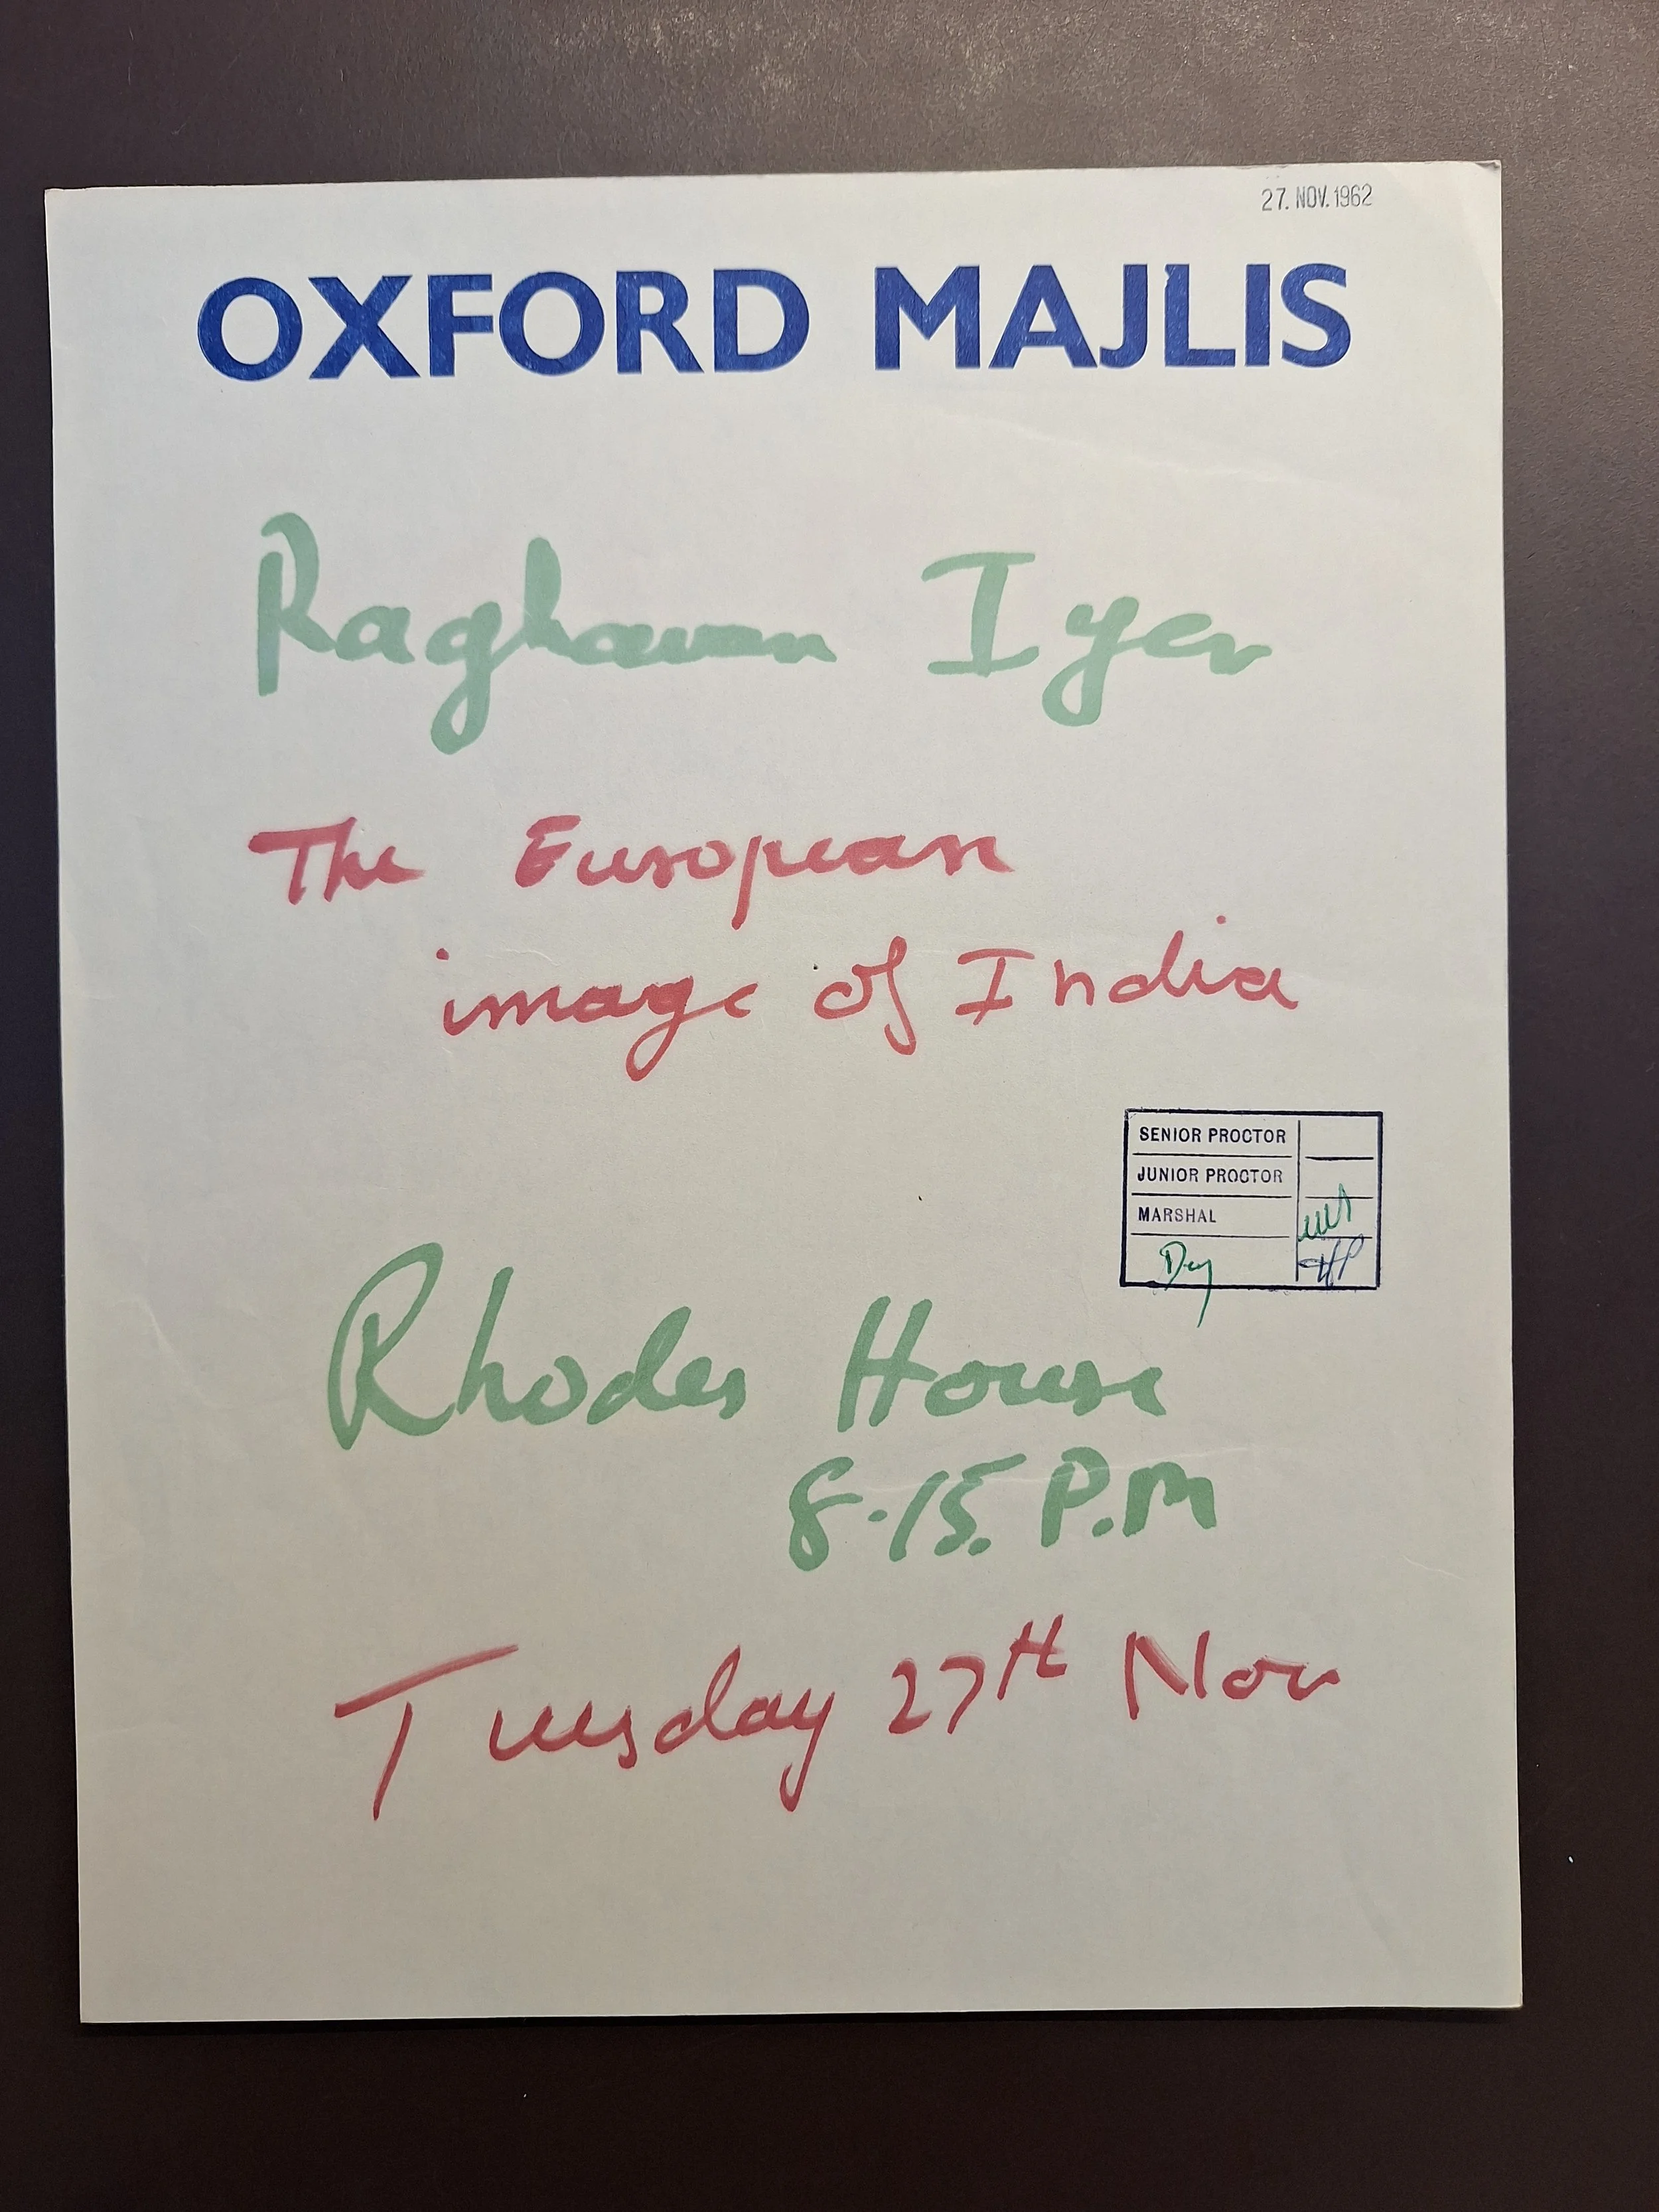 27. NOV. 1962
OXFORD MAJLIS
Raghavan Iyer
The European
image of India
SENIOR PROCTOR
JUNIOR PROCTOR
MARSHAL
Rhodes House
8.15. P.M
Tuesday 27th Nov